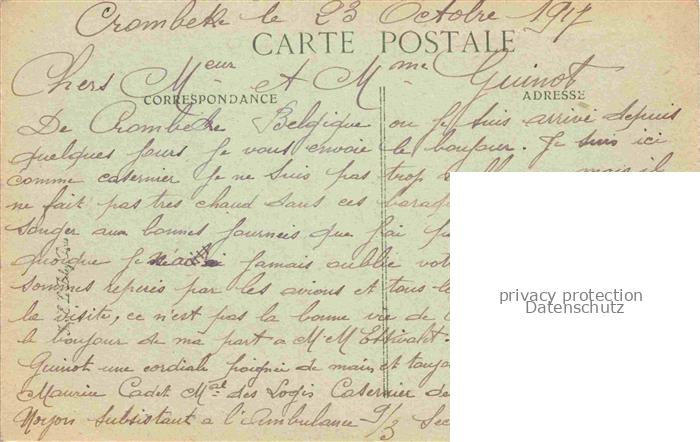 Crombeke le 23 Octobre 1917
CARTE POSTALE
Chers Meur et Mme Guinot
CORRESPONDANCE
ADRESSE
De Crombeke Belgique ou Je suis arrivé depuis
quelques jours Je vous envoie le bonjour. Je suis ici
comme casernier Je ne suis pas trop mais il
ne fait pas tres chaud dans ces
songer aux bonnes journees que j'ai
quoique Je n'ai jamais oublié
sommes reperés par les avions et tous
la visite, ce n'est pas la bonne vie de
le bonjour de ma part a Mr M
Guinot une cordiale poignée de main et
Maurice Cadet Mal des Logis Casernier de
Noyon subsistant a l'ambulance 9/3
privacy protection
Datenschutz